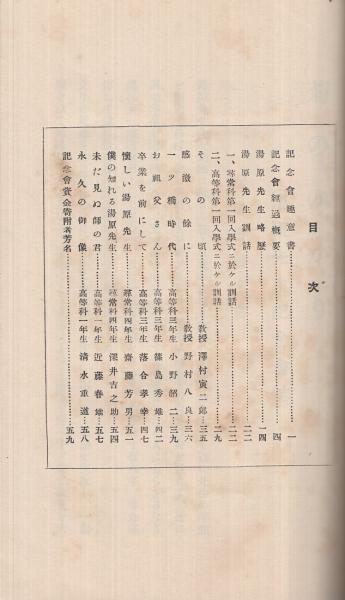 目次
記念會趣意書…………一
記念會經過概要…………四
湯原先生略歷…………一四
湯原先生訓話…………二二
一、尋常科第一回入學式ニ於ケル訓話…………二二
二、高等科第一回入學式ニ於ケル訓話…………二九
その頃…………教授 澤村寅二郎…三五
感激の餘に…………教授 野村八良…三六
一ツ橋時代…………高等科三年生 小野韶二…三九
お祖父さん…………高等科三年生 篠島秀雄…四二
卒業を前にして…………高等科三年生 落合孝幸…四七
懷しい湯原先生…………尋常科四年生 齋藤芳男…五一
僕の知れる湯原先生…………尋常科四年生 深井吉之助…五四
未だ見ぬ師の君…………高等科一年生 近藤春雄…五七
永久の御像…………高等科一年生 清水重道…五八
記念會資金寄附者芳名…………五九